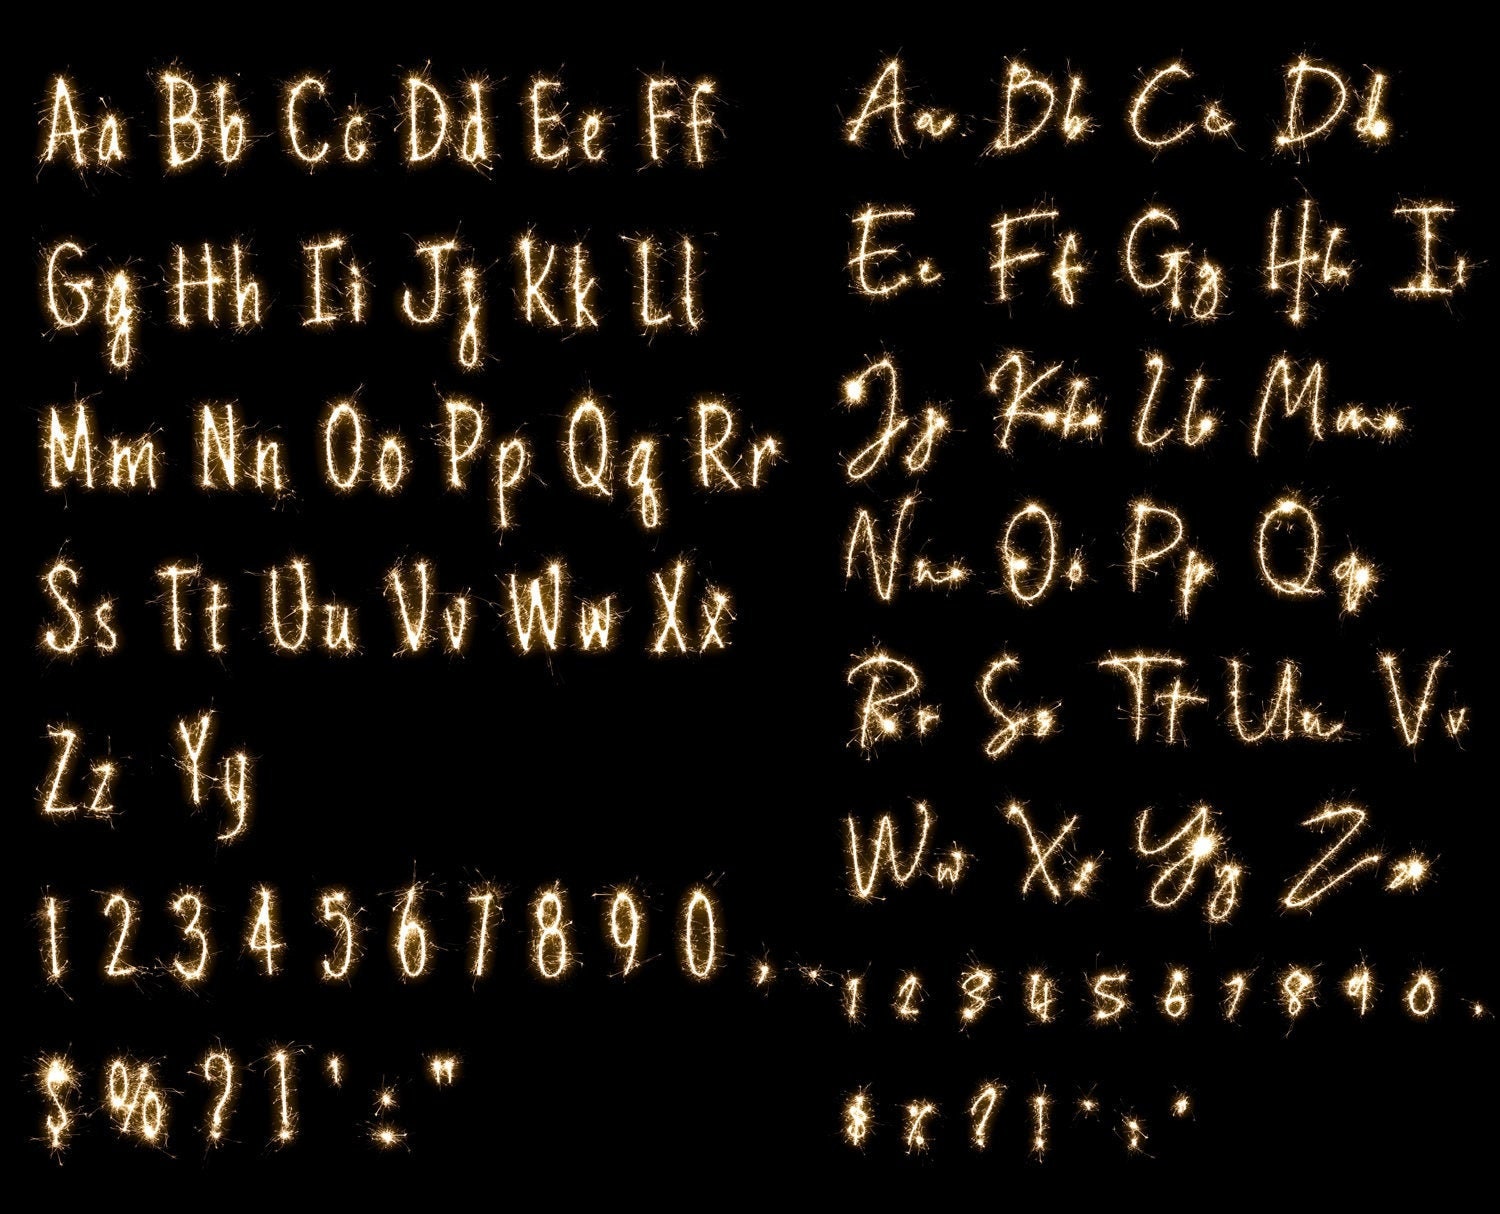 Aa Bb Cc Dd Ee Ff
Gg Hh Ii Jj Kk Ll
Mm Nn Oo Pp Qq Rr
Ss Tt Uu Vv Ww Xx
Zz Yy
1 2 3 4 5 6 7 8 9 0 . ,
$ % ? ! ' : "
Aa Bb Cc Dd
Ee Ff Gg Hh Ii
Jj Kk Ll Mm
Nn Oo Pp Qq
Rr Ss Tt Uu Vv
Ww Xx Yy Zz
1 2 3 4 5 6 7 8 9 0 .
$ % ? ! ' : "